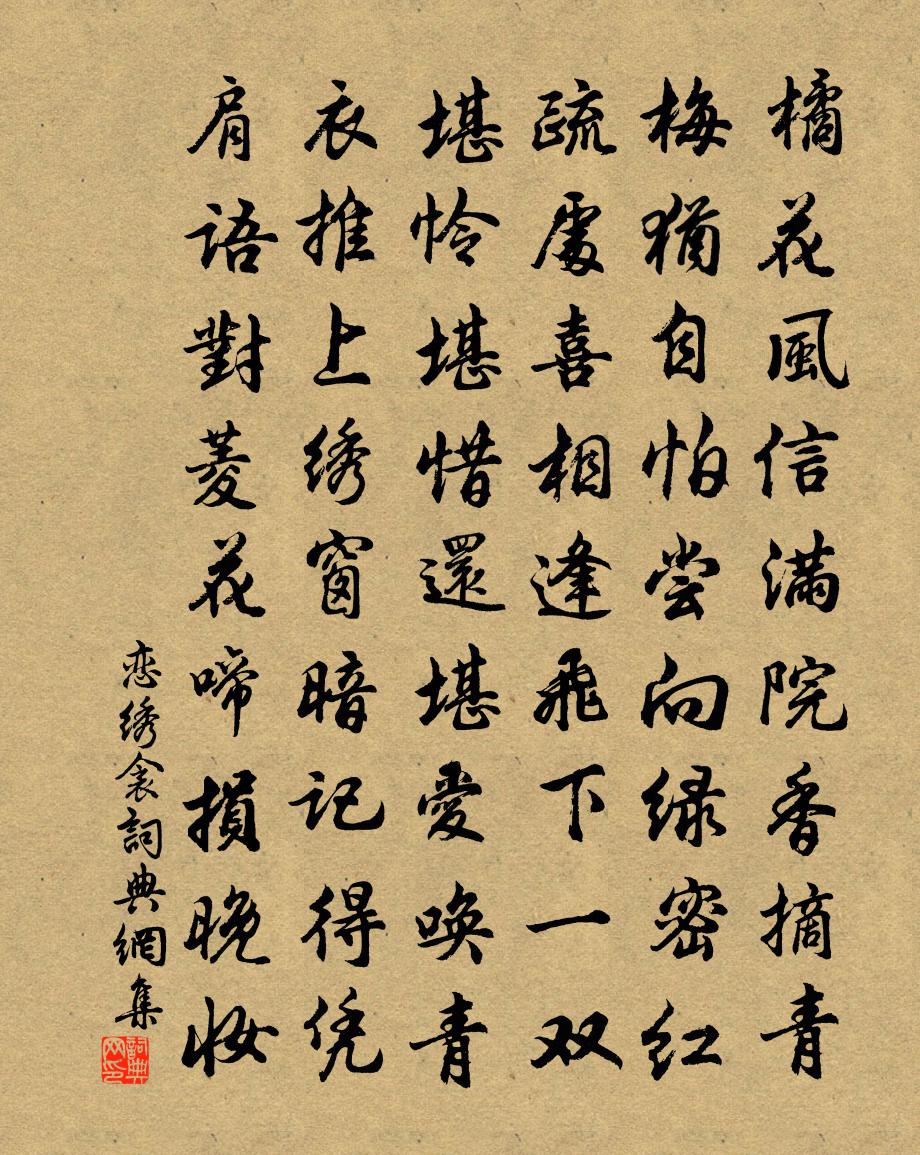 橘花風信滿院香摘青
梅猶自怕尝向緑密紅
疏處喜相逢飛下一双
堪怜堪惜還堪愛唤青
衣推上绣窗暗记得凭
肩语對菱花啼損晚妆
恋绣衾詞典網集
詞典网印